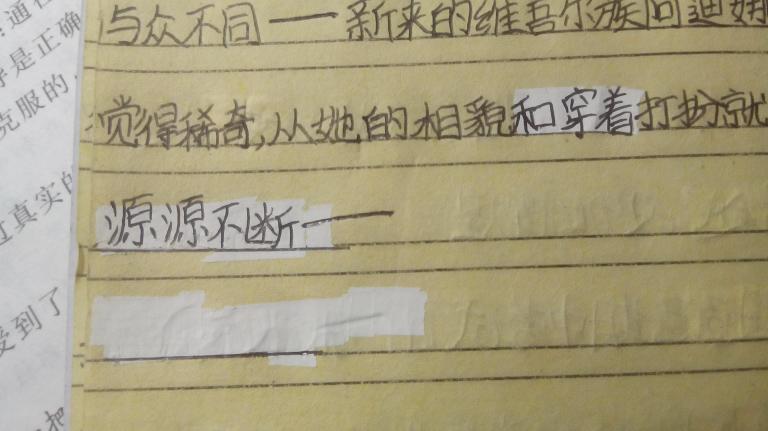 与众不同——新来的维吾尔族回迪
觉得稀奇,从她的相貌和穿着打扮就
源源不断——
通过
是正确
克服的
过真实的
受到了
把